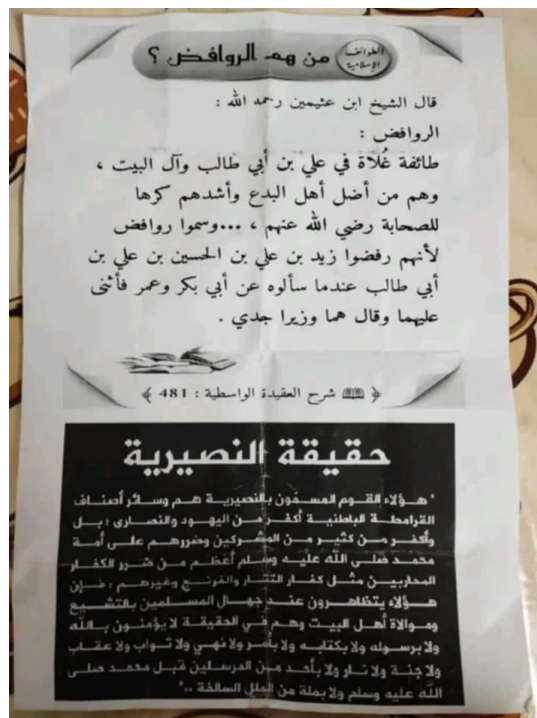 الطوائف
الإسلامية
من هم الروافض ؟
قال الشيخ ابن عثيمين رحمه الله :
الروافض :
طائفة غُلاة في علي بن أبي طالب وآل البيت ،
وهم من أضل أهل البدع وأشدهم كرها
للصحابة رضي الله عنهم ، ...وسموا روافض
لأنهم رفضوا زيد بن علي بن الحسين بن علي بن
أبي طالب عندما سألوه عن أبي بكر وعمر فأثنى
عليهما وقال هما وزيرا جدي .
﴿ شرح العقيدة الواسطية : 481 ﴾
حقيقة النصيرية
" هؤلاء القوم المسمّون بالنصيرية هم وسائر أصناف
القرامطة الباطنية أكفر من اليهود والنصارى ؛ بل
وأكفر من كثير من المشركين وضررهم على أمة
محمد صلى الله عليه وسلم أعظم من ضرر الكفار
المحاربين مثل كفار التتار والفرنج وغيرهم ؛ فإن
هؤلاء يتظاهرون عند جهال المسلمين بالتشيع
وموالاة أهل البيت وهم في الحقيقة لا يؤمنون بالله
ولا برسوله ولا بكتابه ولا بأمر ولا نهي ولا ثواب ولا عقاب
ولا جنة ولا نار ولا بأحد من المرسلين قبل محمد صلى
الله عليه وسلم ولا بملة من الملل السالفة .."